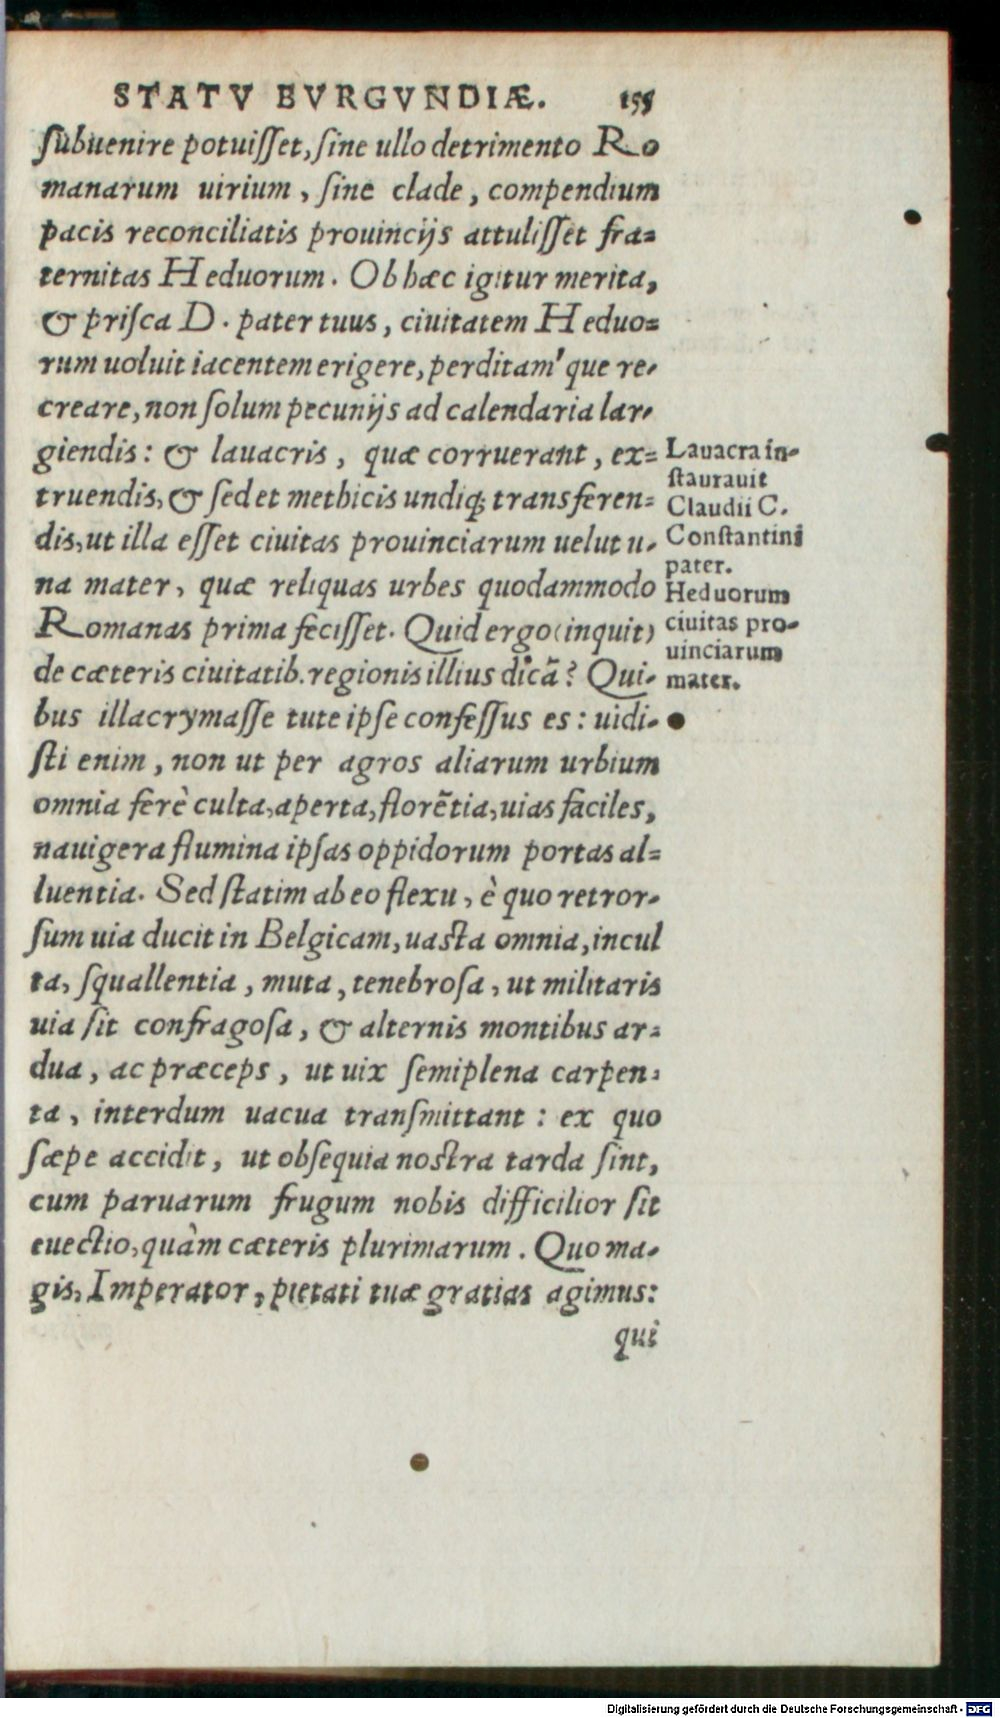 STATV BVRGVNDIÆ. 155
ſubuenire potuiſſet, ſine ullo detrimento Ro
manarum uirium, ſine clade, compendium
pacis reconciliatis prouincijs attuliſſet fra=
ternitas Heduorum. Ob hæc igitur merita,
& priſca D. pater tuus, ciuitatem Heduo=
rum uoluit iacentem erigere, perditam' que re-
creare, non ſolum pecunijs ad calendaria lar-
giendis: & lauacris, quæ corruerant, ex=
truendis, & ſed et methicis undiq; transferen=
dis, ut illa eſſet ciuitas prouinciarum uelut u-
na mater, quæ reliquas urbes quodammodo
Romanas prima feciſſet. Quid ergo (inquit)
de cæteris ciuitatib. regionis illius dicã? Qui-
bus illacrymaſſe tute ipſe confeſſus es: uidi-
ſti enim, non ut per agros aliarum urbium
omnia ferè culta, aperta, florẽtia, uias faciles,
nauigera flumina ipſas oppidorum portas al=
luentia. Sed ſtatim ab eo flexu, è quo retror-
ſum uia ducit in Belgicam, uasta omnia, incul
ta, ſquallentia, muta, tenebroſa, ut militaris
uia ſit confragoſa, & alternis montibus ar-
dua, ac præceps, ut uix ſemiplena carpen-
ta, interdum uacua tranſmittant: ex quo
ſæpe accidit, ut obſequia nostra tarda ſint,
cum paruarum frugum nobis difficilior ſit
euectio, quàm cæteris plurimarum. Quo ma-
gis, Imperator, pietati tuæ gratias agimus:
qui
Lauacra in-
ſtaurauit
Claudii C.
Conſtantini
pater.
Heduorum
ciuitas pro-
uinciarum
mater.
Digitalisierung gefördert durch die Deutsche Forschungsgemeinschaft - DFG